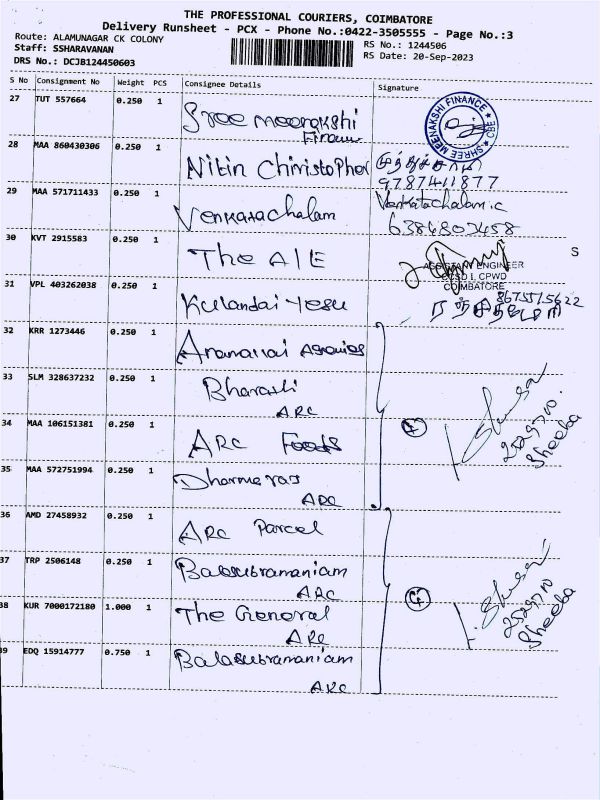 THE PROFESSIONAL COURIERS, COIMBATORE
Delivery Runsheet - PCX - Phone No.:0422-3505555 - Page No.:3
Route: ALAMUNAGAR CK COLONY
RS No.: 1244506
Staff: SSHARAVANAN
RS Date: 20-Sep-2023
DRS No.: DCJB124450603
S No Consignment No Weight PCS Consignee Details Signature
27 TUT 557664 0.250 1 Sree meenakshi
Finance
SHREE MEENAKSHI FINANCE ★ CBE ★
28 MAA 860430306 0.250 1 Nitin Chiristopher
9787411877
29 MAA 571711433 0.250 1 Venkatachalam Venkatachalam.c
6384803458
30 KVT 2915583 0.250 1 The A/E
S
ASSISTANT ENGINEER
CPWD
COIMBATORE
31 VPL 403262038 0.250 1 Kulandai Yesu 8675515622
32 KRR 1273446 0.250 1 Anamallai Agencies
33 SLM 328637232 0.250 1 Bharathi
ARC
34 MAA 106151381 0.250 1 ARC Foods
2529710
Sheeba
35 MAA 572751994 0.250 1 Dharmaraj
ARC
36 AMD 27458932 0.250 1 ARC Parcel
37 TRP 2506148 0.250 1 Balasubramaniam
ARC
38 KUR 7000172180 1.000 1 The General
ARC
2529710
Sheeba
39 EDQ 15914777 0.750 1 Balasubramaniam
ARC